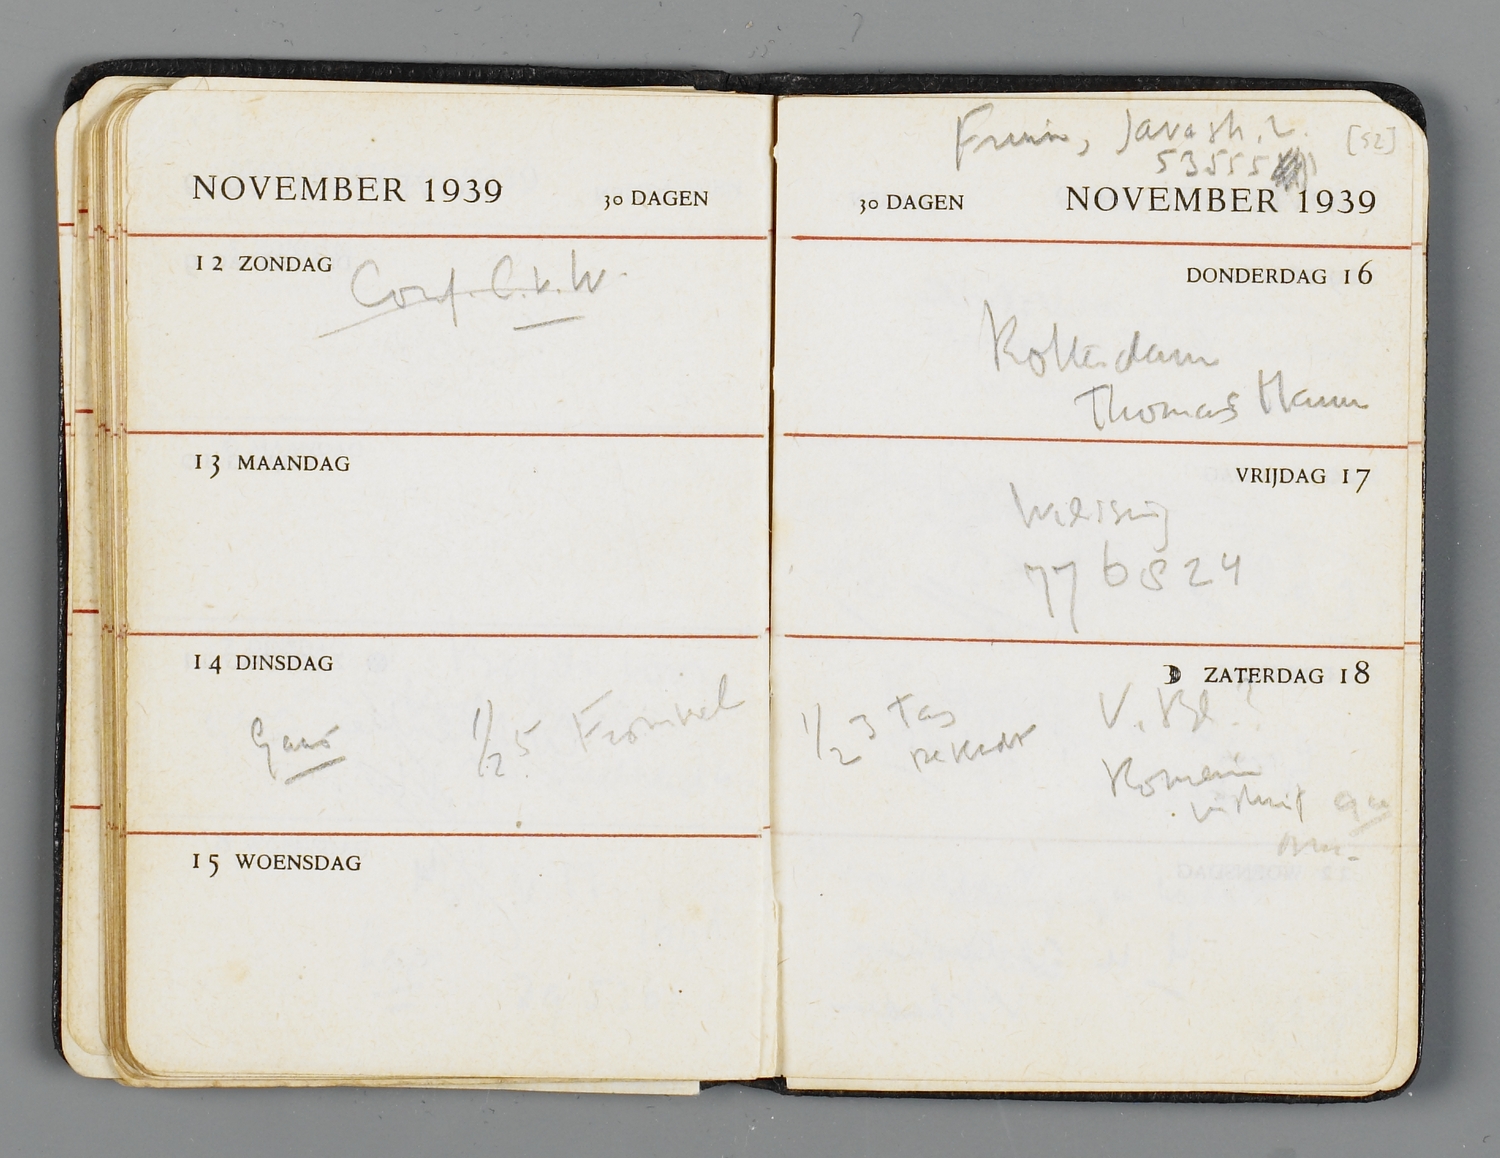 NOVEMBER 1939 30 DAGEN
12 ZONDAG
Conf. C.v.W.
13 MAANDAG
14 DINSDAG
1/2 5
15 WOENSDAG
Fruin, Javastr. 2.
[52]
53555
30 DAGEN NOVEMBER 1939
DONDERDAG 16
Rotterdam
Thomas Mann
VRIJDAG 17
776824
ZATERDAG 18
1/2 3 Tas
V. Bl.?
Romein